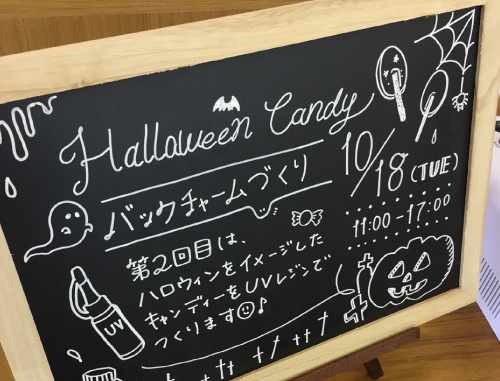 Halloween Candy
バックチャームづくり
10/18(TUE)
11:00-17:00
第2回目は、
ハロウィンをイメージした
キャンディーをUVレジンで
つくります☺♪
UV